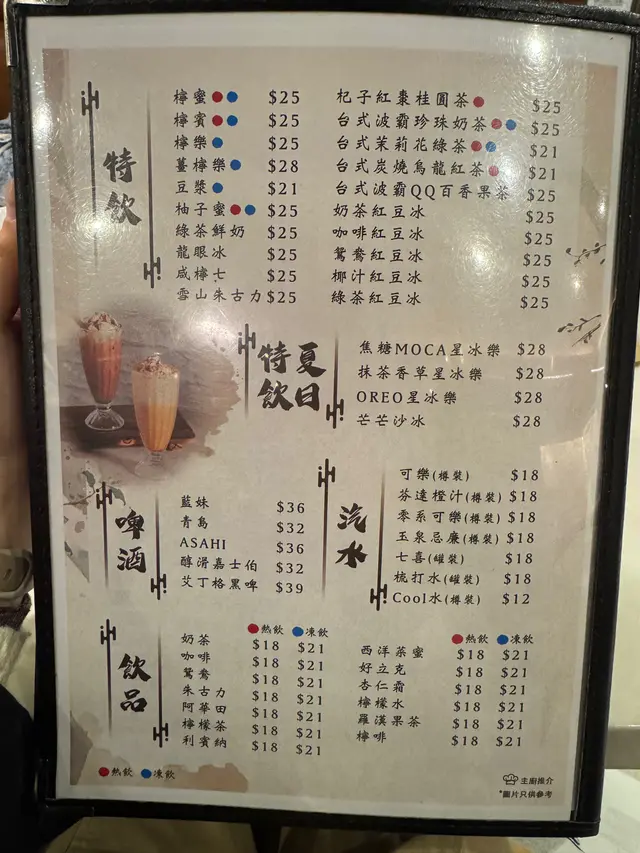 特飲
檸蜜 $25
檸賓 $25
檸樂 $25
薑檸樂 $28
豆漿 $21
柚子蜜 $25
綠茶鮮奶 $25
龍眼冰 $25
咸檸七 $25
雪山朱古力 $25
杞子紅棗桂圓茶 $25
台式波霸珍珠奶茶 $25
台式茉莉花綠茶 $21
台式炭燒烏龍紅茶 $21
台式波霸QQ百香果茶 $25
奶茶紅豆冰 $25
咖啡紅豆冰 $25
鴛鴦紅豆冰 $25
椰汁紅豆冰 $25
綠茶紅豆冰 $25
夏日特飲
焦糖MOCA星冰樂 $28
抹茶香草星冰樂 $28
OREO星冰樂 $28
芒芒沙冰 $28
啤酒
藍妹 $36
青島 $32
ASAHI $36
醇滑嘉士伯 $32
艾丁格黑啤 $39
汽水
可樂(樽裝) $18
芬達橙汁(樽裝) $18
零系可樂(樽裝) $18
玉泉忌廉(樽裝) $18
七喜(罐裝) $18
梳打水(罐裝) $18
Cool水(樽裝) $12
飲品
熱飲 凍飲
奶茶 $18 $21
咖啡 $18 $21
鴛鴦 $18 $21
朱古力 $18 $21
阿華田 $18 $21
檸檬茶 $18 $21
利賓納 $18 $21
熱飲 凍飲
西洋菜蜜 $18 $21
好立克 $18 $21
杏仁霜 $18 $21
檸檬水 $18 $21
羅漢果茶 $18 $21
檸啡 $18 $21
熱飲 凍飲
主廚推介
*圖片只供參考